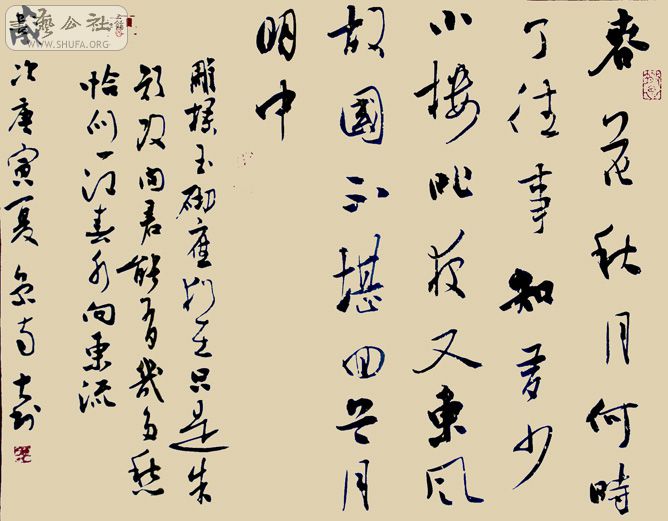 春花秋月何時
了往事知多少
小樓昨夜又東風
故國不堪回首月
明中
雕欄玉砌應猶在只是朱
顏改問君能有幾多愁
恰似一江春水向東流
次庚寅夏
藝公社
WWW.SHUFA.ORG